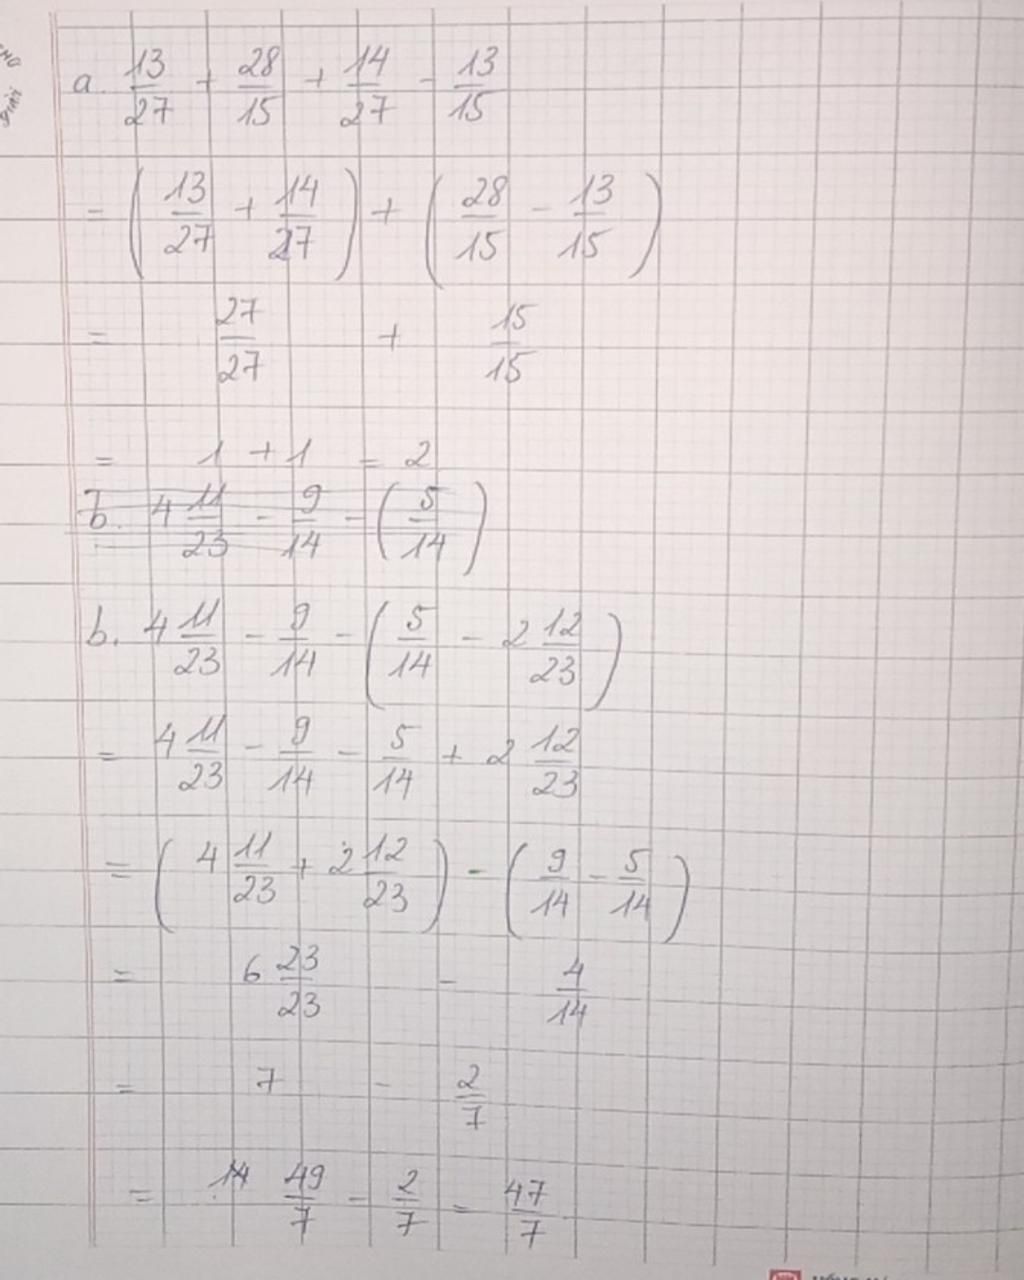 a. 13/27 + 28/15 + 14/27 - 13/15
= (13/27 + 14/27) + (28/15 - 13/15)
= 27/27 + 15/15
= 1 + 1 = 2
b. 4 11/23 - 9/14 - (5/14)
b. 4 11/23 - 9/14 - (5/14 - 2 12/23)
= 4 11/23 - 9/14 - 5/14 + 2 12/23
= (4 11/23 + 2 12/23) - (9/14 - 5/14)
= 6 23/23 - 4/14
= 7 - 2/7
= 49/7 - 2/7 = 47/7